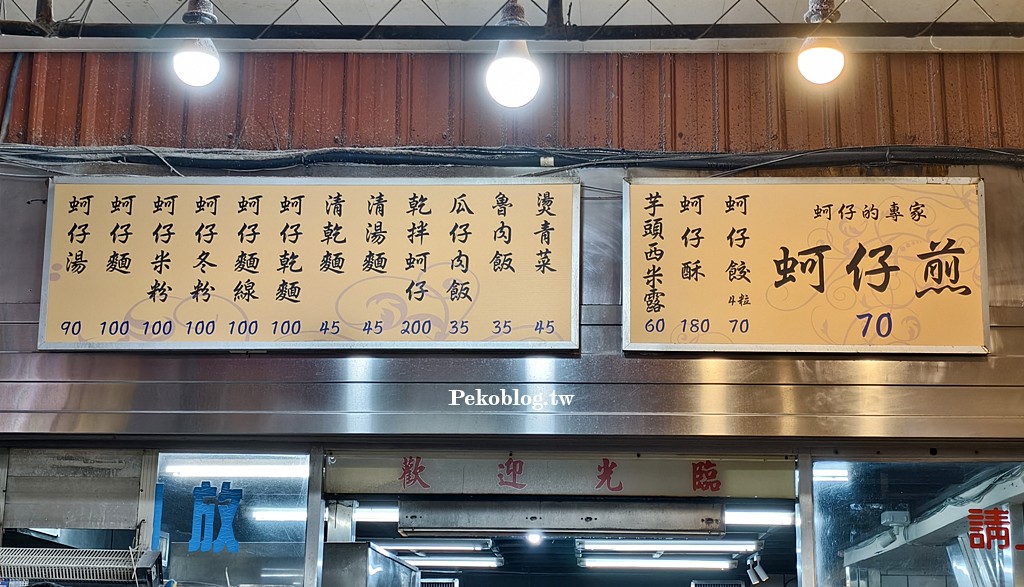 燙青菜 45
魯肉飯 35
瓜仔肉飯 35
乾拌蚵仔 200
清湯麵 45
清乾麵 45
蚵仔乾麵 100
蚵仔麵線 100
蚵仔冬粉 100
蚵仔米粉 100
蚵仔麵 100
蚵仔湯 90
蚵仔的專家
蚵仔煎
70
蚵仔餃 4粒 70
蚵仔酥 180
芋頭西米露 60
Pekoblog.tw
歡迎光臨
放
請